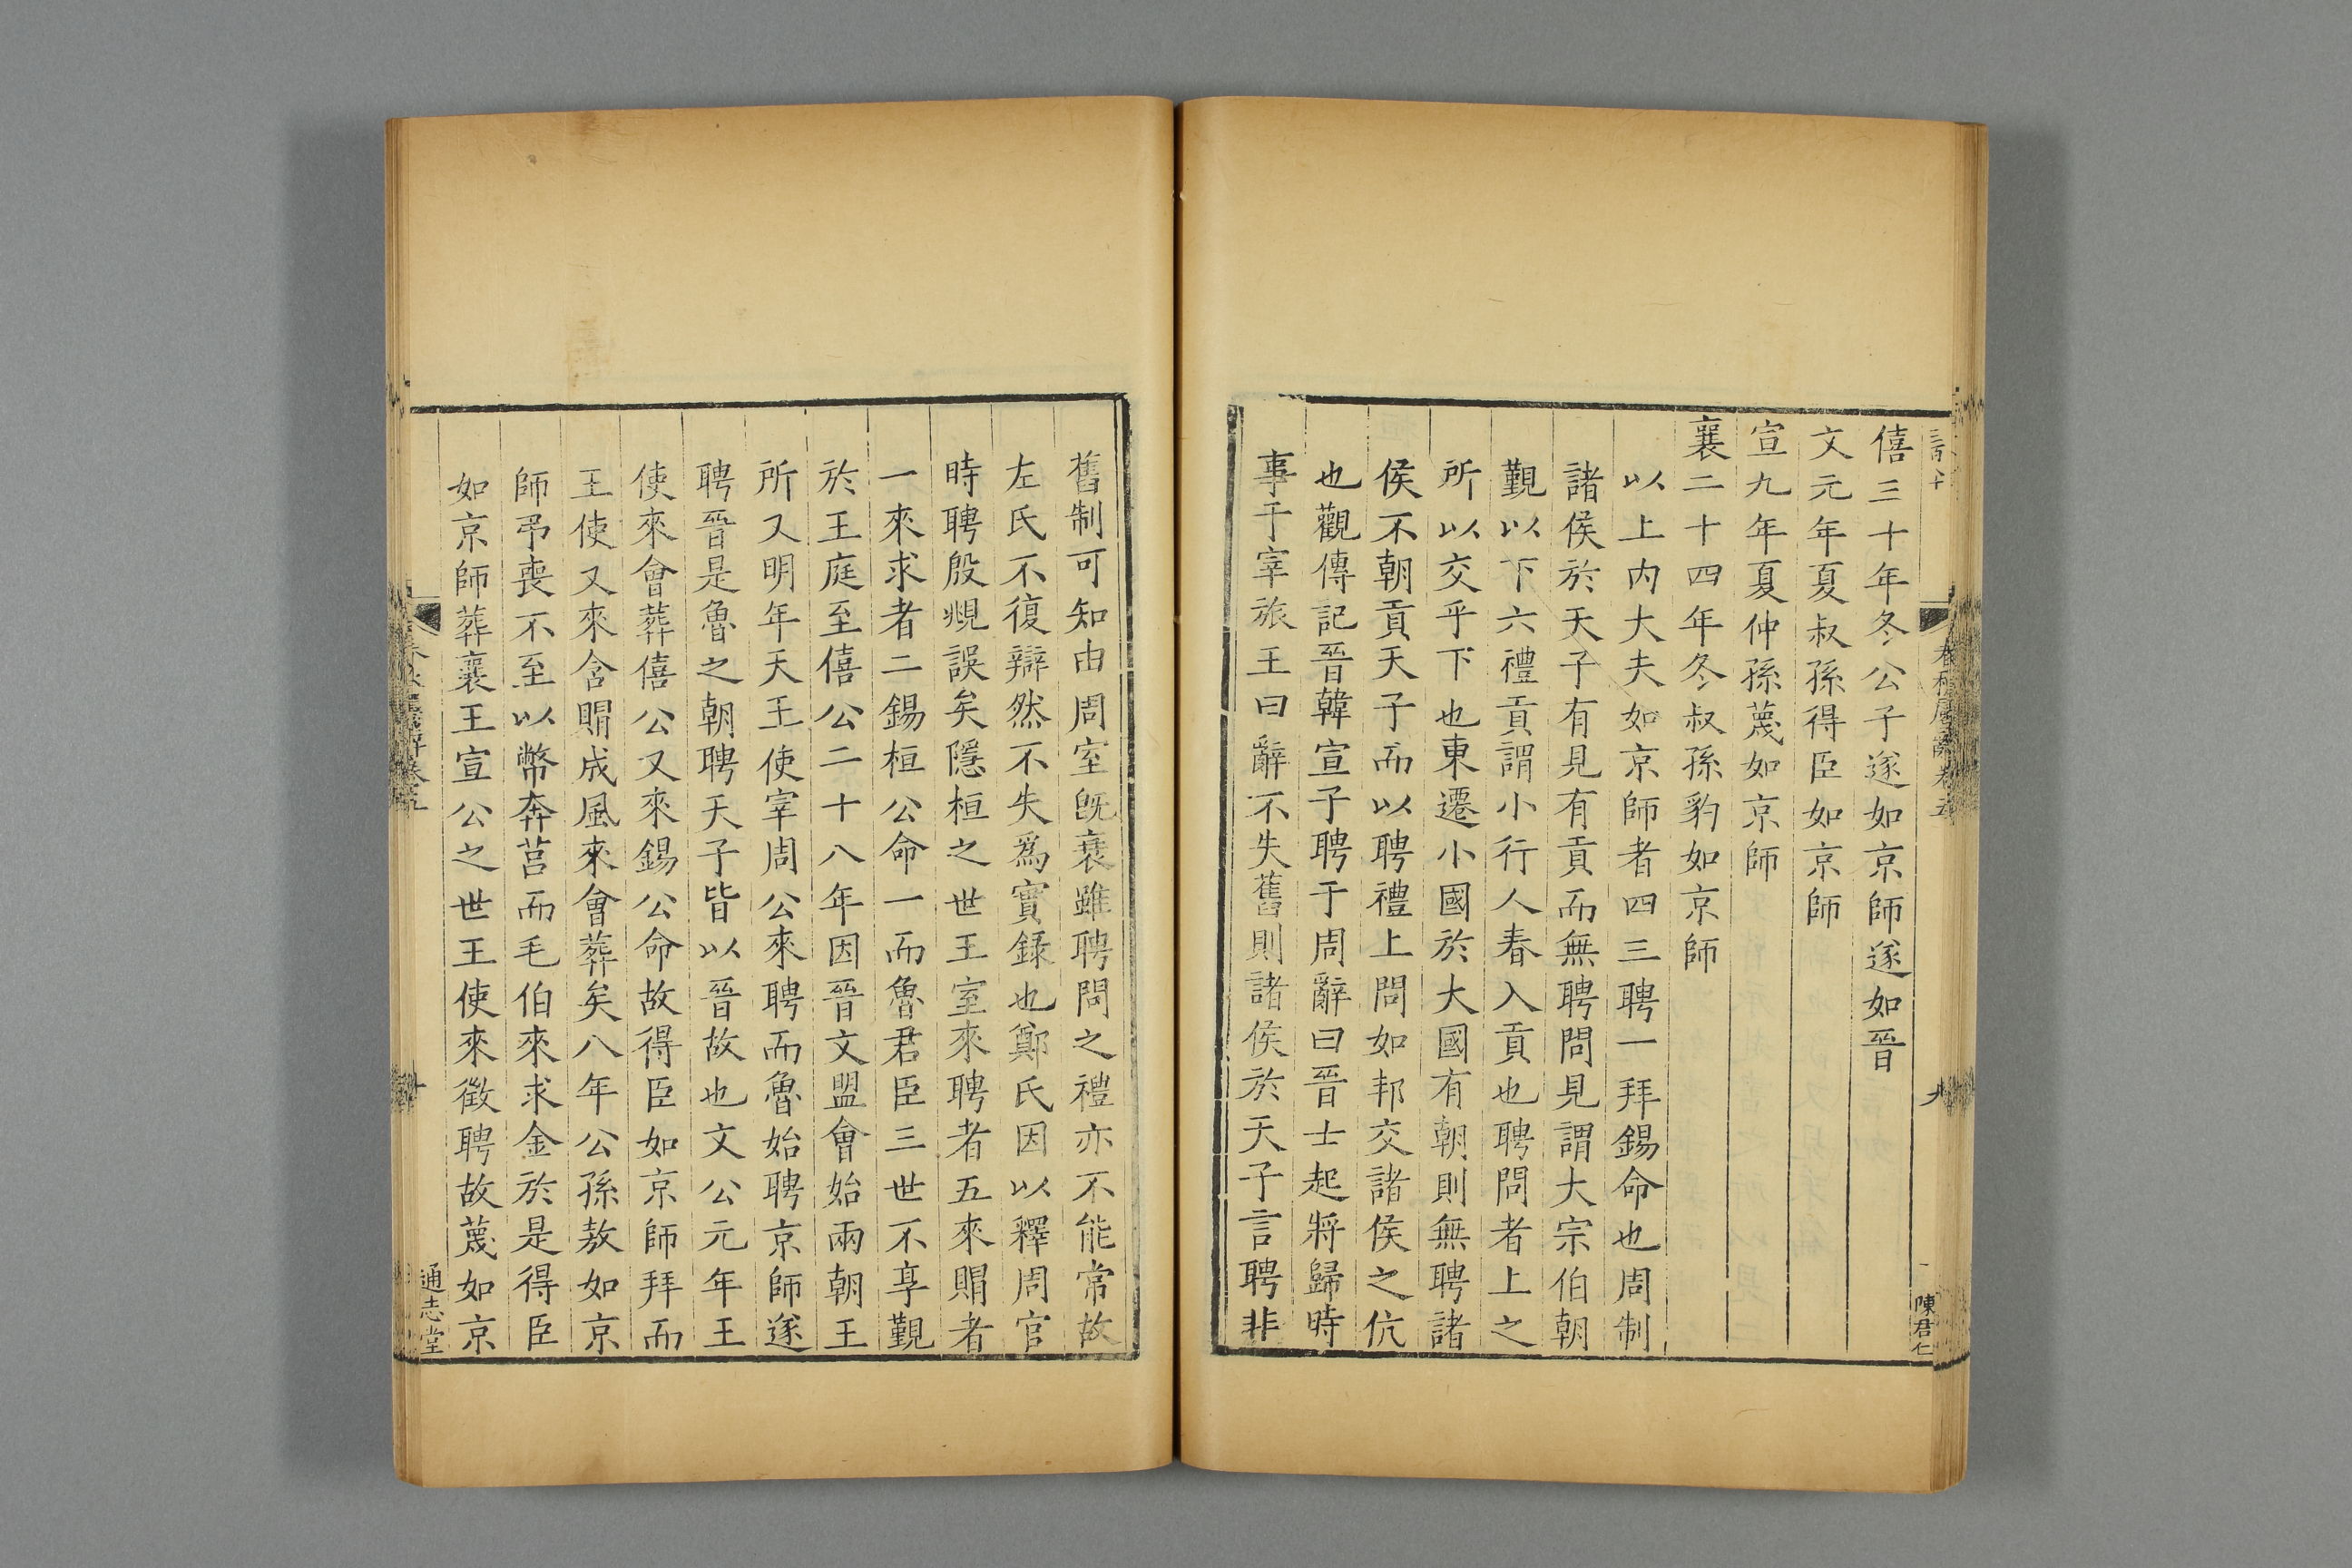 僖三十年冬公子遂如京師遂如晉
文元年夏叔孫得臣如京師
宣九年夏仲孫蔑如京師
襄二十四年冬叔孫豹如京師
以上内大夫如京師者四三聘一拜錫命也周制
諸侯於天子有見有貢而無聘問見謂大宗伯朝
覲以下六禮貢謂小行人春入貢也聘問者上之
所以交乎下也東遷小國於大國有朝則無聘諸
侯不朝貢天子而以聘禮上問如邦交諸侯之伉
也觀傳記晉韓宣子聘于周辭曰晉士起將歸時
事于宰旅王曰辭不失舊則諸侯於天子言聘非
九
陳君仁
舊制可知由周室旣衰雖聘問之禮亦不能常故
左氏不復辯然不失爲實錄也鄭氏因以釋周官
時聘殷覜誤矣隱桓之世王室來聘者五來賵者
一來求者二錫桓公命一而魯君臣三世不享覲
於王庭至僖公二十八年因晉文盟會始兩朝王
所又明年天王使宰周公來聘而魯始聘京師遂
聘晉是魯之朝聘天子皆以晉故也文公元年王
使來會葬僖公又來錫公命故得臣如京師拜而
王使又來含賵成風來會葬矣八年公孫敖如京
師弔喪不至以幣奔莒而毛伯來求金於是得臣
如京師葬襄王宣公之世王使來徵聘故蔑如京
通志堂